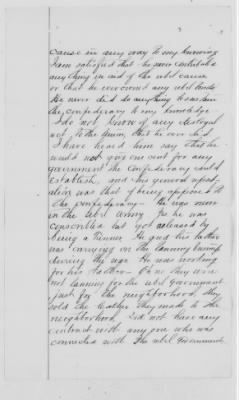 cause in any way to my knowing
I am satisfied that he never contributed
anything in aid of the rebel cause
or that he ever owned any rebel bonds
He never did do anything to sustain
the confederacy to my knowledge
I do not know of any disloyal
act, to the Govm, that he ever did
I have heard him say that he
would not give one cent for any
government the Confederacy could
establish, and his general reput
ation was that of being opposed to
the confederacy — He was never
in the rebel army for he was
conscripted but got released by
being a Tanner. He and his father
was carrying on the tanning business
during the war. He was working
for his father — they were
not tanning for the rebel government
just for the neighborhood, they
sold the leather they made to the
neighborhood did not have any
contract with any one who was
connected with the rebel Government